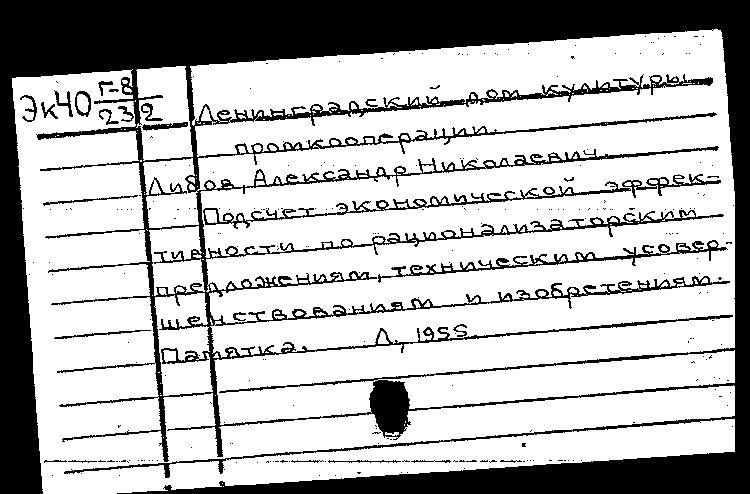 Эк40 Г-8
23 2
Ленинградский дом культуры
промкооперации.
Либов, Александр Николаевич.
Подсчет экономической эффек-
тивности по рационализаторским
предложениям, техническим усовер-
шенствованиям и изобретениям.
Памятка. Л., 1955.